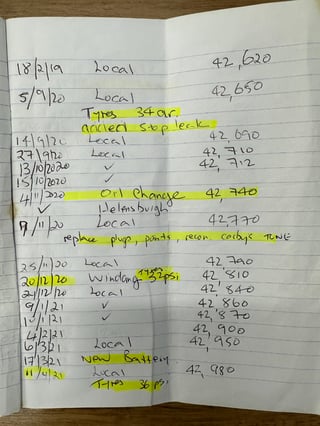 18/2/19 Local 42,620
5/9/20 Local 42,650
Tyres 34
added stop leak
14/9/20 Local 42,690
27/9/20 Local 42,710
13/10/2020 ✓ 42,712
15/10/2020 ✓
4/11/2020 Oil Change 42,740
✓ Helensburgh
9/11/20 Local 42,770
replace plugs, points, recon. carbys TUNE
25/11/20 Local 42,790
20/12/20 Windang Tyres 32psi 42,810
21/12/20 Local 42,840
9/1/21 ✓ 42,860
1/1/21 ✓ 42,870
4/2/21 42,900
6/3/21 Local 42,950
17/3/21 New Battery
11/4/21 Local 42,980
Tyres 36 psi